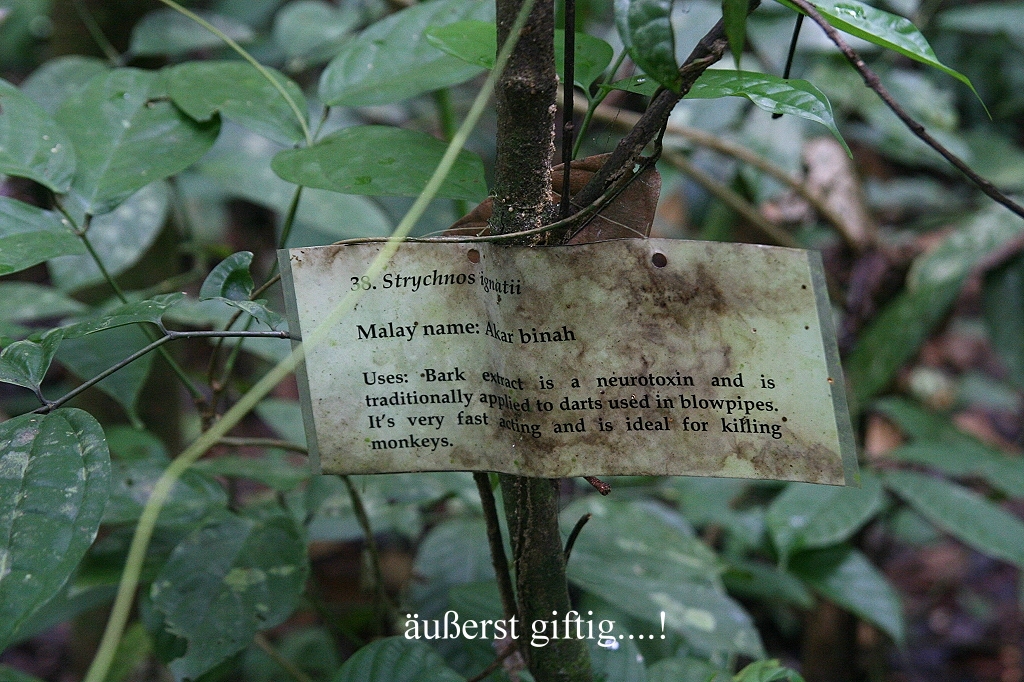 38. Strychnos ignatii
Malay name: Akar binah
Uses: Bark extract is a neurotoxin and is
traditionally applied to darts used in blowpipes.
It's very fast acting and is ideal for killing
monkeys.
äußerst giftig....!